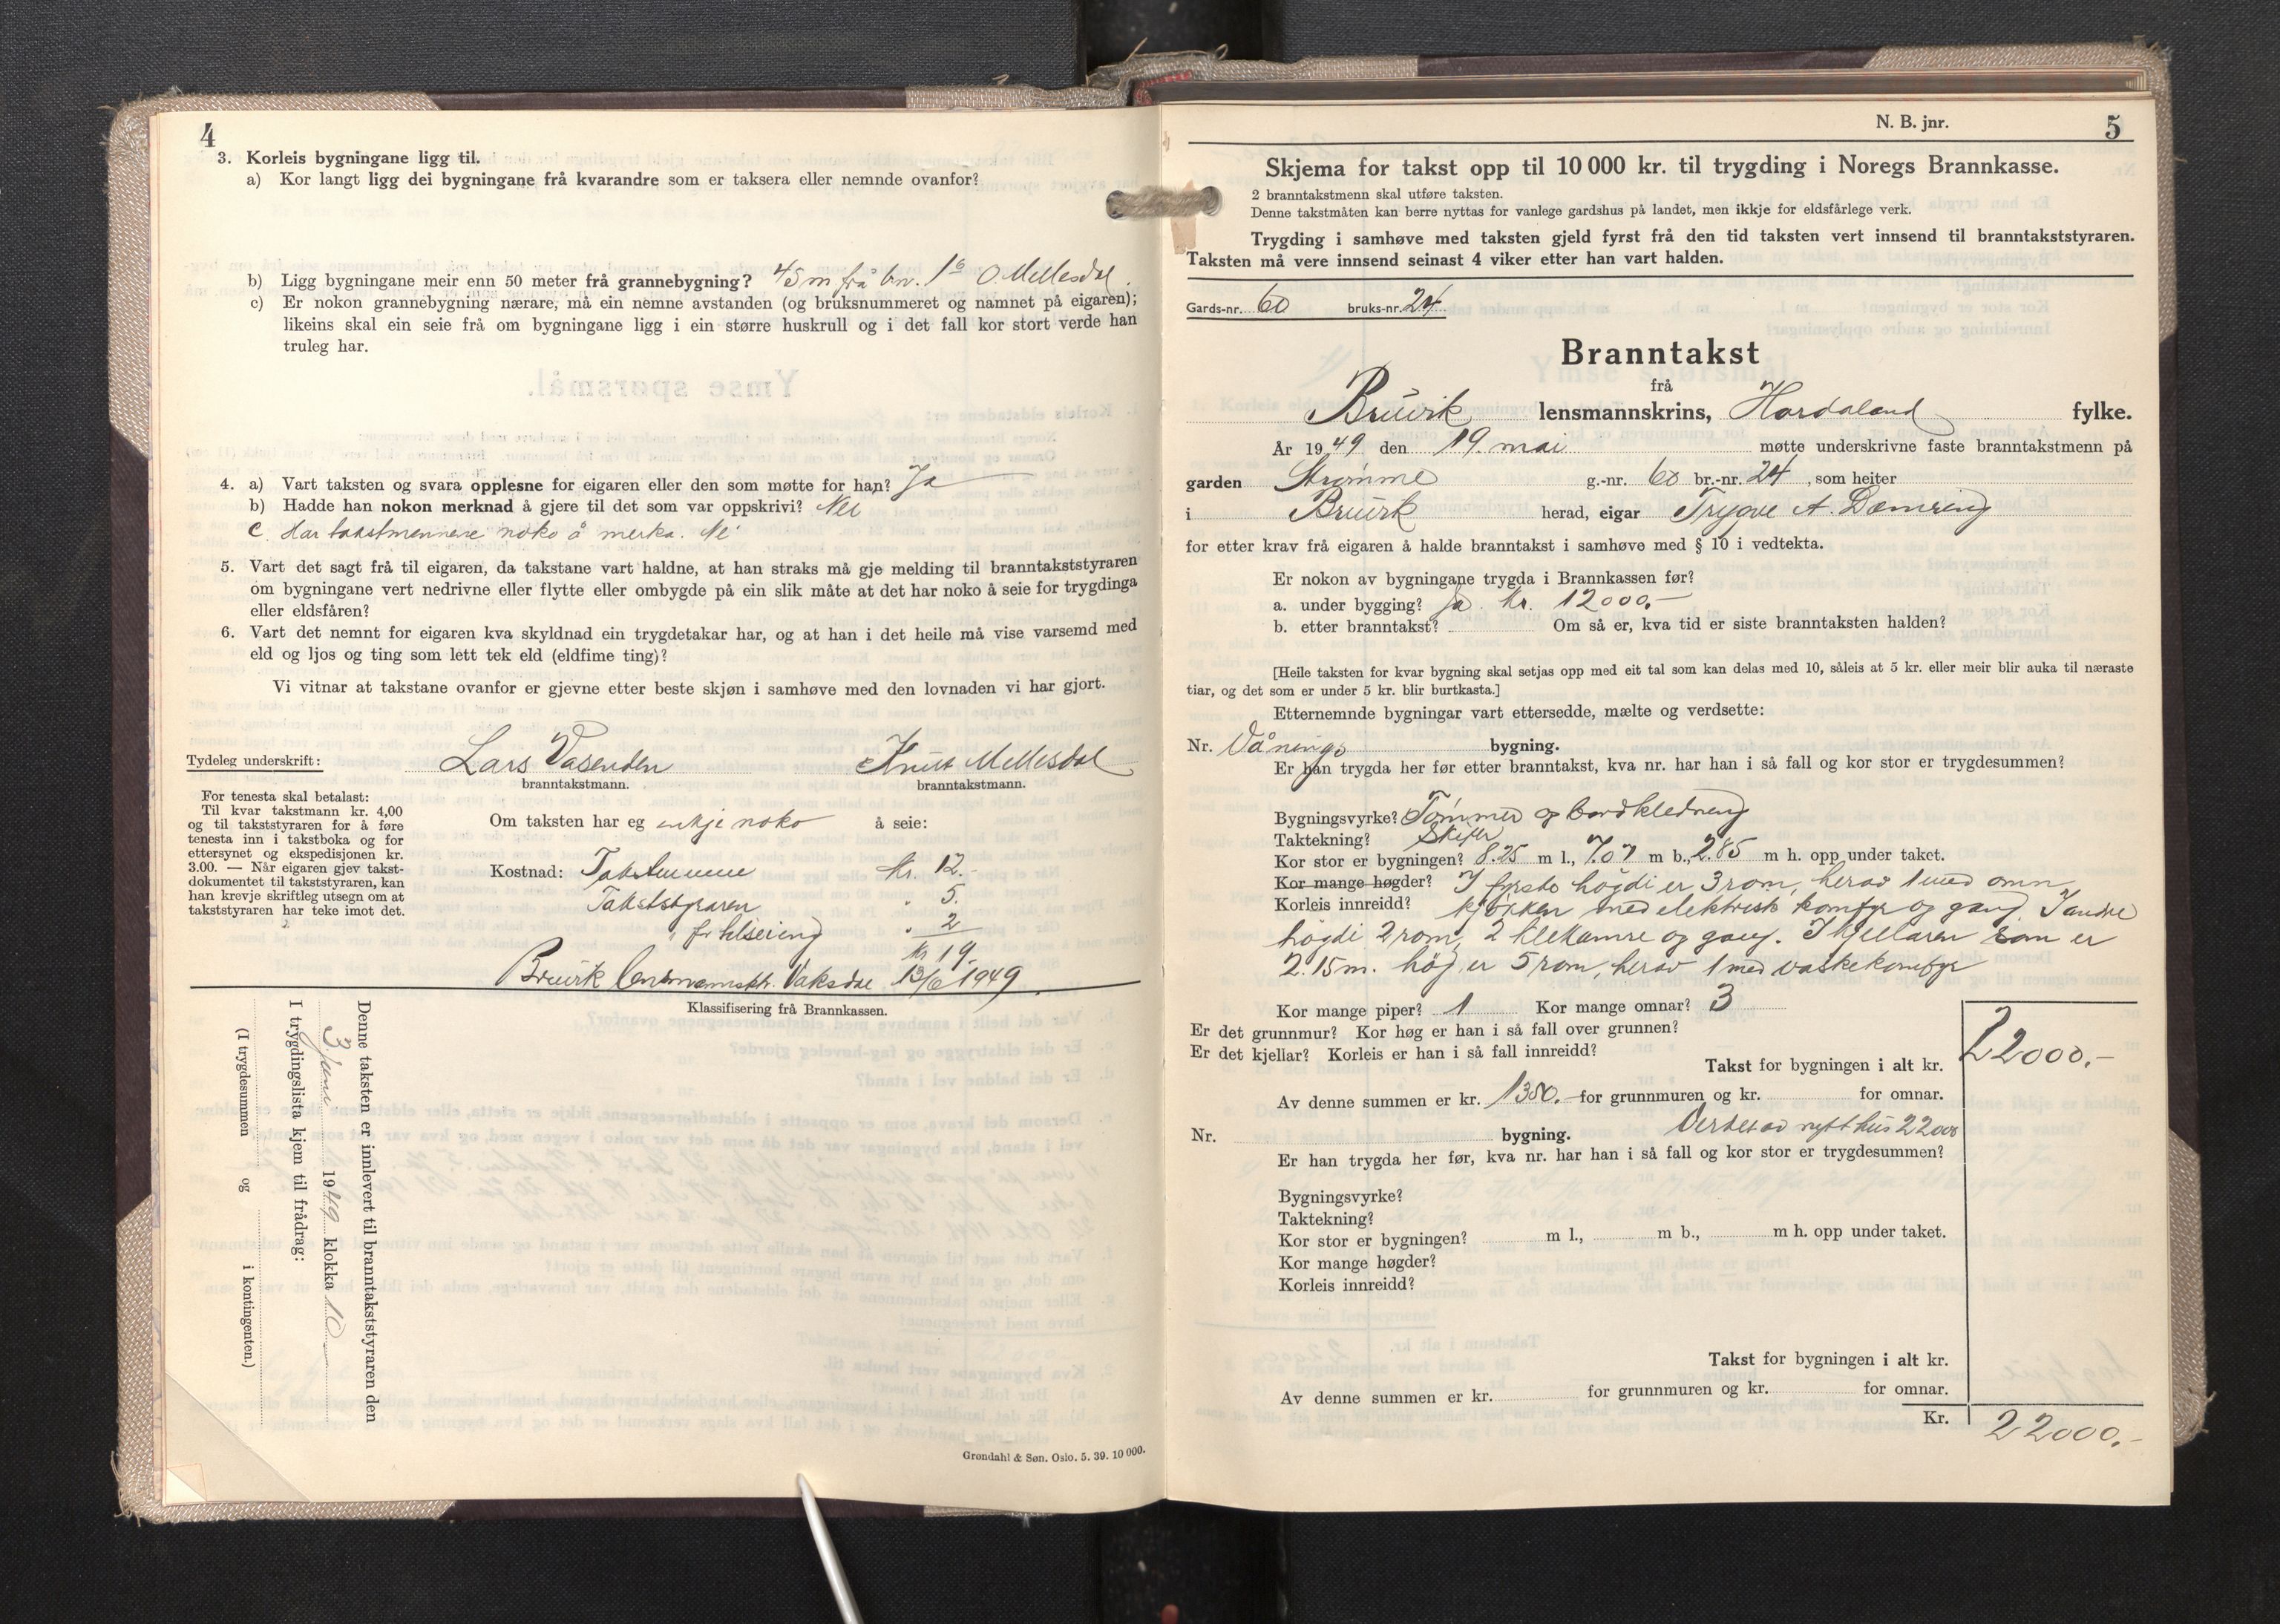 4
3. Korleis bygningane ligg til.
a) Kor langt ligg dei bygningane frå kvarandre som er taksera eller nemnde ovanfor?
b) Ligg bygningane meir enn 50 meter frå grannebygning? 45 m frå bn. 16 O. Mellesdal.
c) Er nokon grannebygning nærare, må ein nemne avstanden (og bruksnummeret og namnet på eigaren);
likeins skal ein seie frå om bygningane ligg i ein større huskrull og i det fall kor stort verde han
truleg har.
4. a) Vart taksten og svara opplesne for eigaren eller den som møtte for han? Ja
b) Hadde han nokon merknad å gjere til det som var oppskrivi? Nei
c. Har takstmennene noko å merka. Nei
5. Vart det sagt frå til eigaren, da takstane vart haldne, at han straks må gje melding til branntakststyraren
om bygningane vert nedrivne eller flytte eller ombygde på ein slik måte at det har noko å seie for trygdinga
eller eldsfåren?
6. Vart det nemnt for eigaren kva skyldnad ein trygdetakar har, og at han i det heile må vise varsemd med
eld og ljos og ting som lett tek eld (eldfime ting)?
Vi vitnar at takstane ovanfor er gjevne etter beste skjøn i samhøve med den lovnaden vi har gjort.
Tydeleg underskrift: Lars Vasenden Knut Mellesdal
branntakstmann. branntakstmann.
For tenesta skal betalast:
Til kvar takstmann kr. 4,00
og til takststyraren for å føre
tenesta inn i takstboka og for
ettersynet og ekspedisjonen kr.
3.00. — Når eigaren gjev takst-
dokumentet til takststyraren, kan
han krevje skriftleg utsegn om at
takststyraren har teke imot det.
Om taksten har eg inkje noko å seie:
Kostnad: Takstmennene kr. 12.-
Takststyraren " 5.
for tilseiing " 2
kr 19.
Bruvik lensmannsktr. Vaksdal 13/6 1949.
Klassifisering frå Brannkassen.
Denne taksten er innlevert til branntakststyraren den
3 juni 1949 klokka 10
I trygdingslista kjem til frådrag:
(I trygdesummen og i kontingenten.)
Grøndahl & Søn. Oslo. 5. 39. 10 000.
N. B. jnr. 5
Skjema for takst opp til 10 000 kr. til trygding i Noregs Brannkasse.
2 branntakstmenn skal utføre taksten.
Denne takstmåten kan berre nyttas for vanlege gardshus på landet, men ikkje for eldsfårlege verk.
Trygding i samhøve med taksten gjeld fyrst frå den tid taksten vert innsend til branntakststyraren.
Taksten må vere innsend seinast 4 viker etter han vart halden.
Gards-nr. 60 bruks-nr. 24
Branntakst
frå
Bruvik lensmannskrins, Hordaland fylke.
År 1949 den 19. mai møtte underskrivne faste branntakstmenn på
garden Strømme g.-nr. 60 br.-nr. 24, som heiter
i Bruvik herad, eigar Trygve A. Dæmring
for etter krav frå eigaren å halde branntakst i samhøve med § 10 i vedtekta.
Er nokon av bygningane trygda i Brannkassen før?
a. under bygging? Ja. Kr. 12000.-
b. etter branntakst? Om så er, kva tid er siste branntaksten halden?
[Heile taksten for kvar bygning skal setjas opp med eit tal som kan delas med 10, såleis at 5 kr. eller meir blir auka til næraste
tiar, og det som er under 5 kr. blir burtkasta.]
Etternemnde bygningar vart ettersedde, mælte og verdsette:
Nr. Vånings bygning.
Er han trygda her før etter branntakst, kva nr. har han i så fall og kor stor er trygdesummen?
Bygningsvyrke? Tømmer og bordkledning
Taktekning? Skifer
Kor stor er bygningen? 8.25 m l., 7.07 m b., 2.85 m h. opp under taket.
Kor mange høgder? I fyrste högdi er 3 rom, herav 1 med omn
Korleis innreidd? kjøkken med elektrisk komfyr og gang. I andre
högdi 2 rom, 2 klekamre og gang. I kjellaren som er
2.15 m. høg, er 5 rom, herav 1 med vaskekomfyr
Kor mange piper? 1 Kor mange omnar? 3
Er det grunnmur? Kor høg er han i så fall over grunnen?
Er det kjellar? Korleis er han i så fall innreidd?
Takst for bygningen i alt kr. 22000.-
Av denne summen er kr. 1380.- for grunnmuren og kr. for omnar.
Verdet av nytt hus 22000
Nr. bygning.
Er han trygda her før, kva nr. har han i så fall og kor stor er trygdesummen?
Bygningsvyrke?
Taktekning?
Kor stor er bygningen? m l., m b., m h. opp under taket.
Kor mange høgder?
Korleis innreidd?
Takst for bygningen i alt kr.
Av denne summen er kr. for grunnmuren og kr. for omnar.
Kr. 22000.-